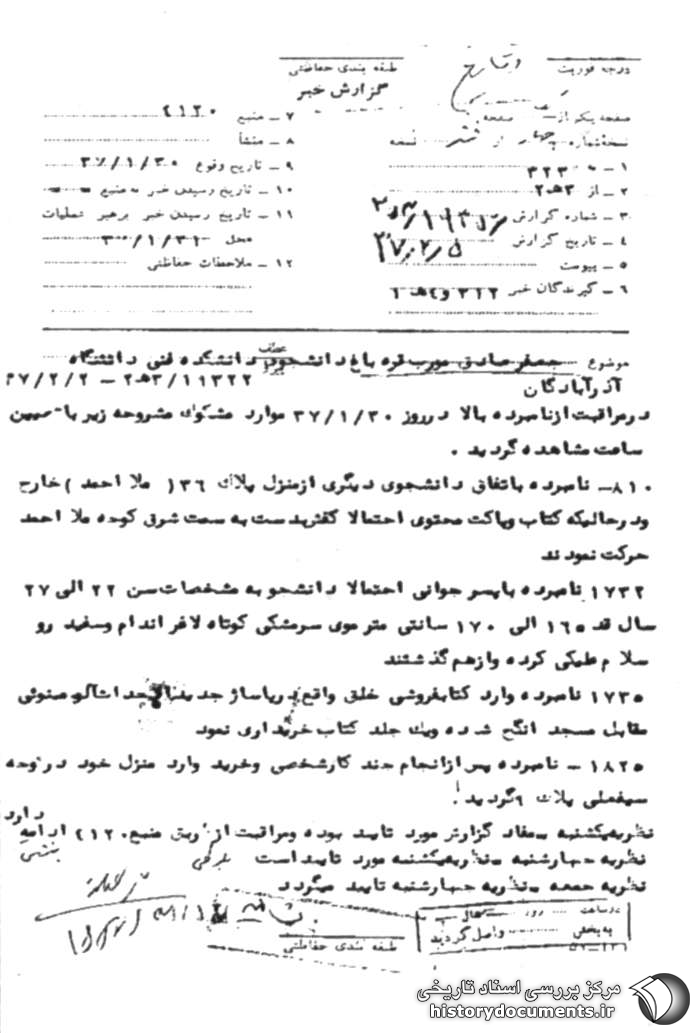 درجه فوریت
طبقه بندی حفاظتی
گزارش خبر
صفحه یک از صفحه
نسخه شماره چهار از نسخه
۱ - به ۳۲۳
۲ - از ۳هـ۲
۳ - شماره گزارش
۴ - تاریخ گزارش ۴۷/۲/۵
۵ - پیوست
۶ - گیرندگان خبر ۳۱۲ و ۴هـ۱
۷ - منبع ۴۱۲۰
۸ - منشأ
۹ - تاریخ وقوع ۳۷/۱/۳۰
۱۰ - تاریخ رسیدن خبر به منبع
۱۱ - تاریخ رسیدن خبر برهبر عملیات
محل ۳۰/۱/۳۱
۱۲ - ملاحظات حفاظتی
موضوع جعفر صادق مورب قره باغ دانشجوی دانشکده فنی دانشگاه
آذرآبادگان ۳/۱۱۳۲۲هـ۲ - ۳۷/۲/۲
درمراقبت ازنامبرده بالا درروز ۳۷/۱/۳۰ موارد مشکوک مشروحه زیر با تعیین
ساعت مشاهده گردید .
۸۱۰- نامبرده باتفاق دانشجوی دیگری ازمنزل پلاک ۳۶ ( ملا احمد ) خارج
ودرحالیکه کتاب وپاکت محتوی احتمالا کفش بدست به سمت شرق کوچه ملا احمد
حرکت نمودند
۱۷۳۲ نامبرده باپسر جوانی احتمالا دانشجو به مشخصات سن ۲۲ الی ۲۷
سال قد ۱۶۵ الی ۱۷۰ سانتی متر موی سرمشکی کوتاه لاغر اندام وسفید رو
سلام علیکی کرده وازهم گذشتند
۱۷۳۵ نامبرده وارد کتابفروشی خلق واقع درپاساژ جدید
مقابل مسجد انگج شده ویک جلد کتاب خریداری نمود
۱۸۲۵ - نامبرده پس ازانجام چند کارشخصی وخرید وارد منزل خود در کوچه
سیفعلی پلاک ۹ گردید .
نظریه یکشنبه - مفاد گزارش مورد تایید بوده ومراقبت از طریق منبع ۴۱۲۰ ادامه دارد
نظریه چهارشنبه - نظریه یکشنبه مورد تایید است
نظریه جمعه - نظریه چهارشنبه تایید میگردد
درساعت روز
به بخش واصل گردید
طبقه بندی حفاظتی
مرکز بررسی اسناد تاریخی
historydocuments.ir